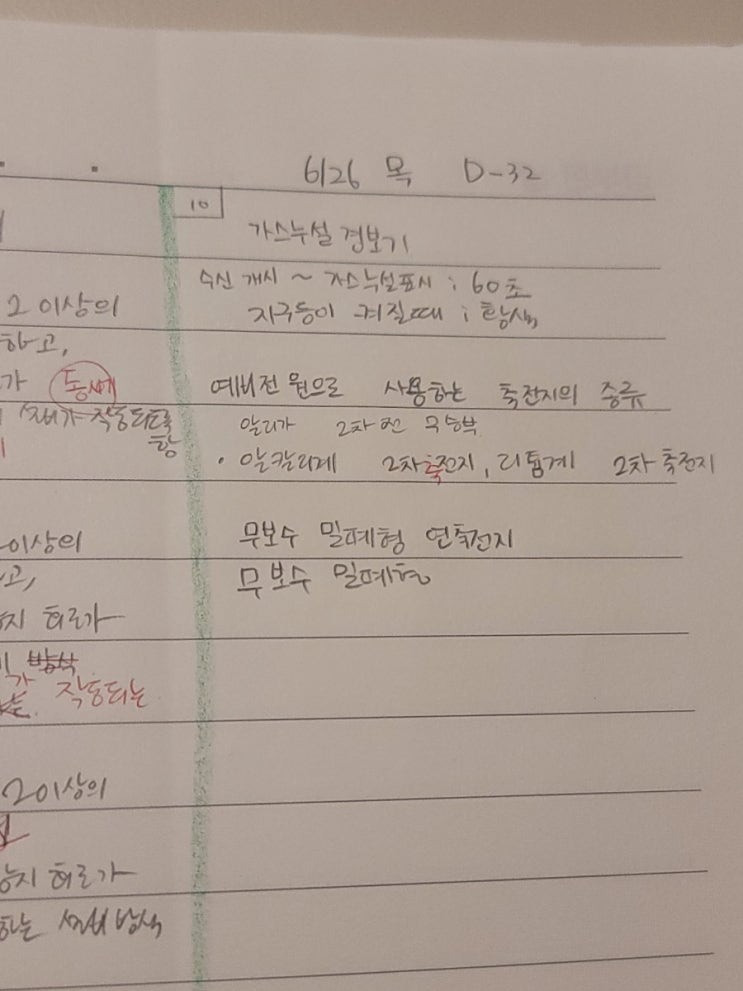 6/26 목 D-32
10
가스누설 경보기
수신 개시 ~ 가스누설표시 : 60초
지구등이 켜질때 : 황색
예비전원으로 사용하는 축전지의 종류
알리가 2차 전 무 보
· 알칼리계 2차축전지, 리튬계 2차 축전지
무보수 밀폐형 연축전지
무보수 밀폐형
2 이상의
하고,
가 동시에
설비가 작동되도록
함
이상의
고,
지 회로가
가 방식
작동되는
2이상의
지 회로가
하는 설비 방식